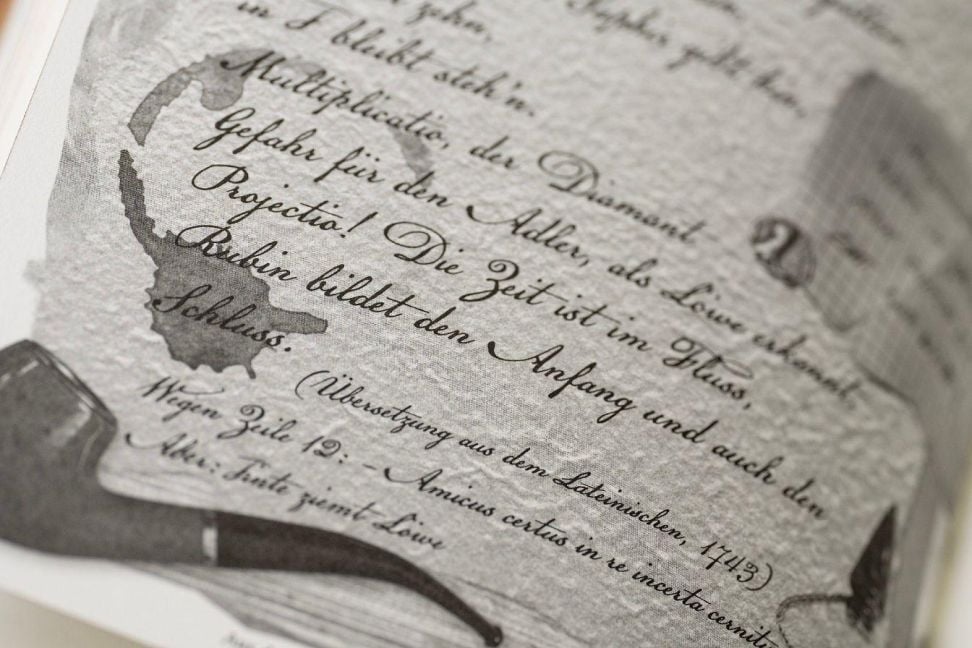 zehn,
in F bleibt steh'n.
Multiplicatio, der Diamant
Gefahr für den Adler, als Löwe erkannt,
Projectio! Die Zeit ist im Fluss,
Rubin bildet den Anfang und auch den
Schluss.
(Übersetzung aus dem Lateinischen, 1743)
Wegen Zeile 12: - Amicus certus in re incerta cernitu
Aber: Tinte ziemt Löwe